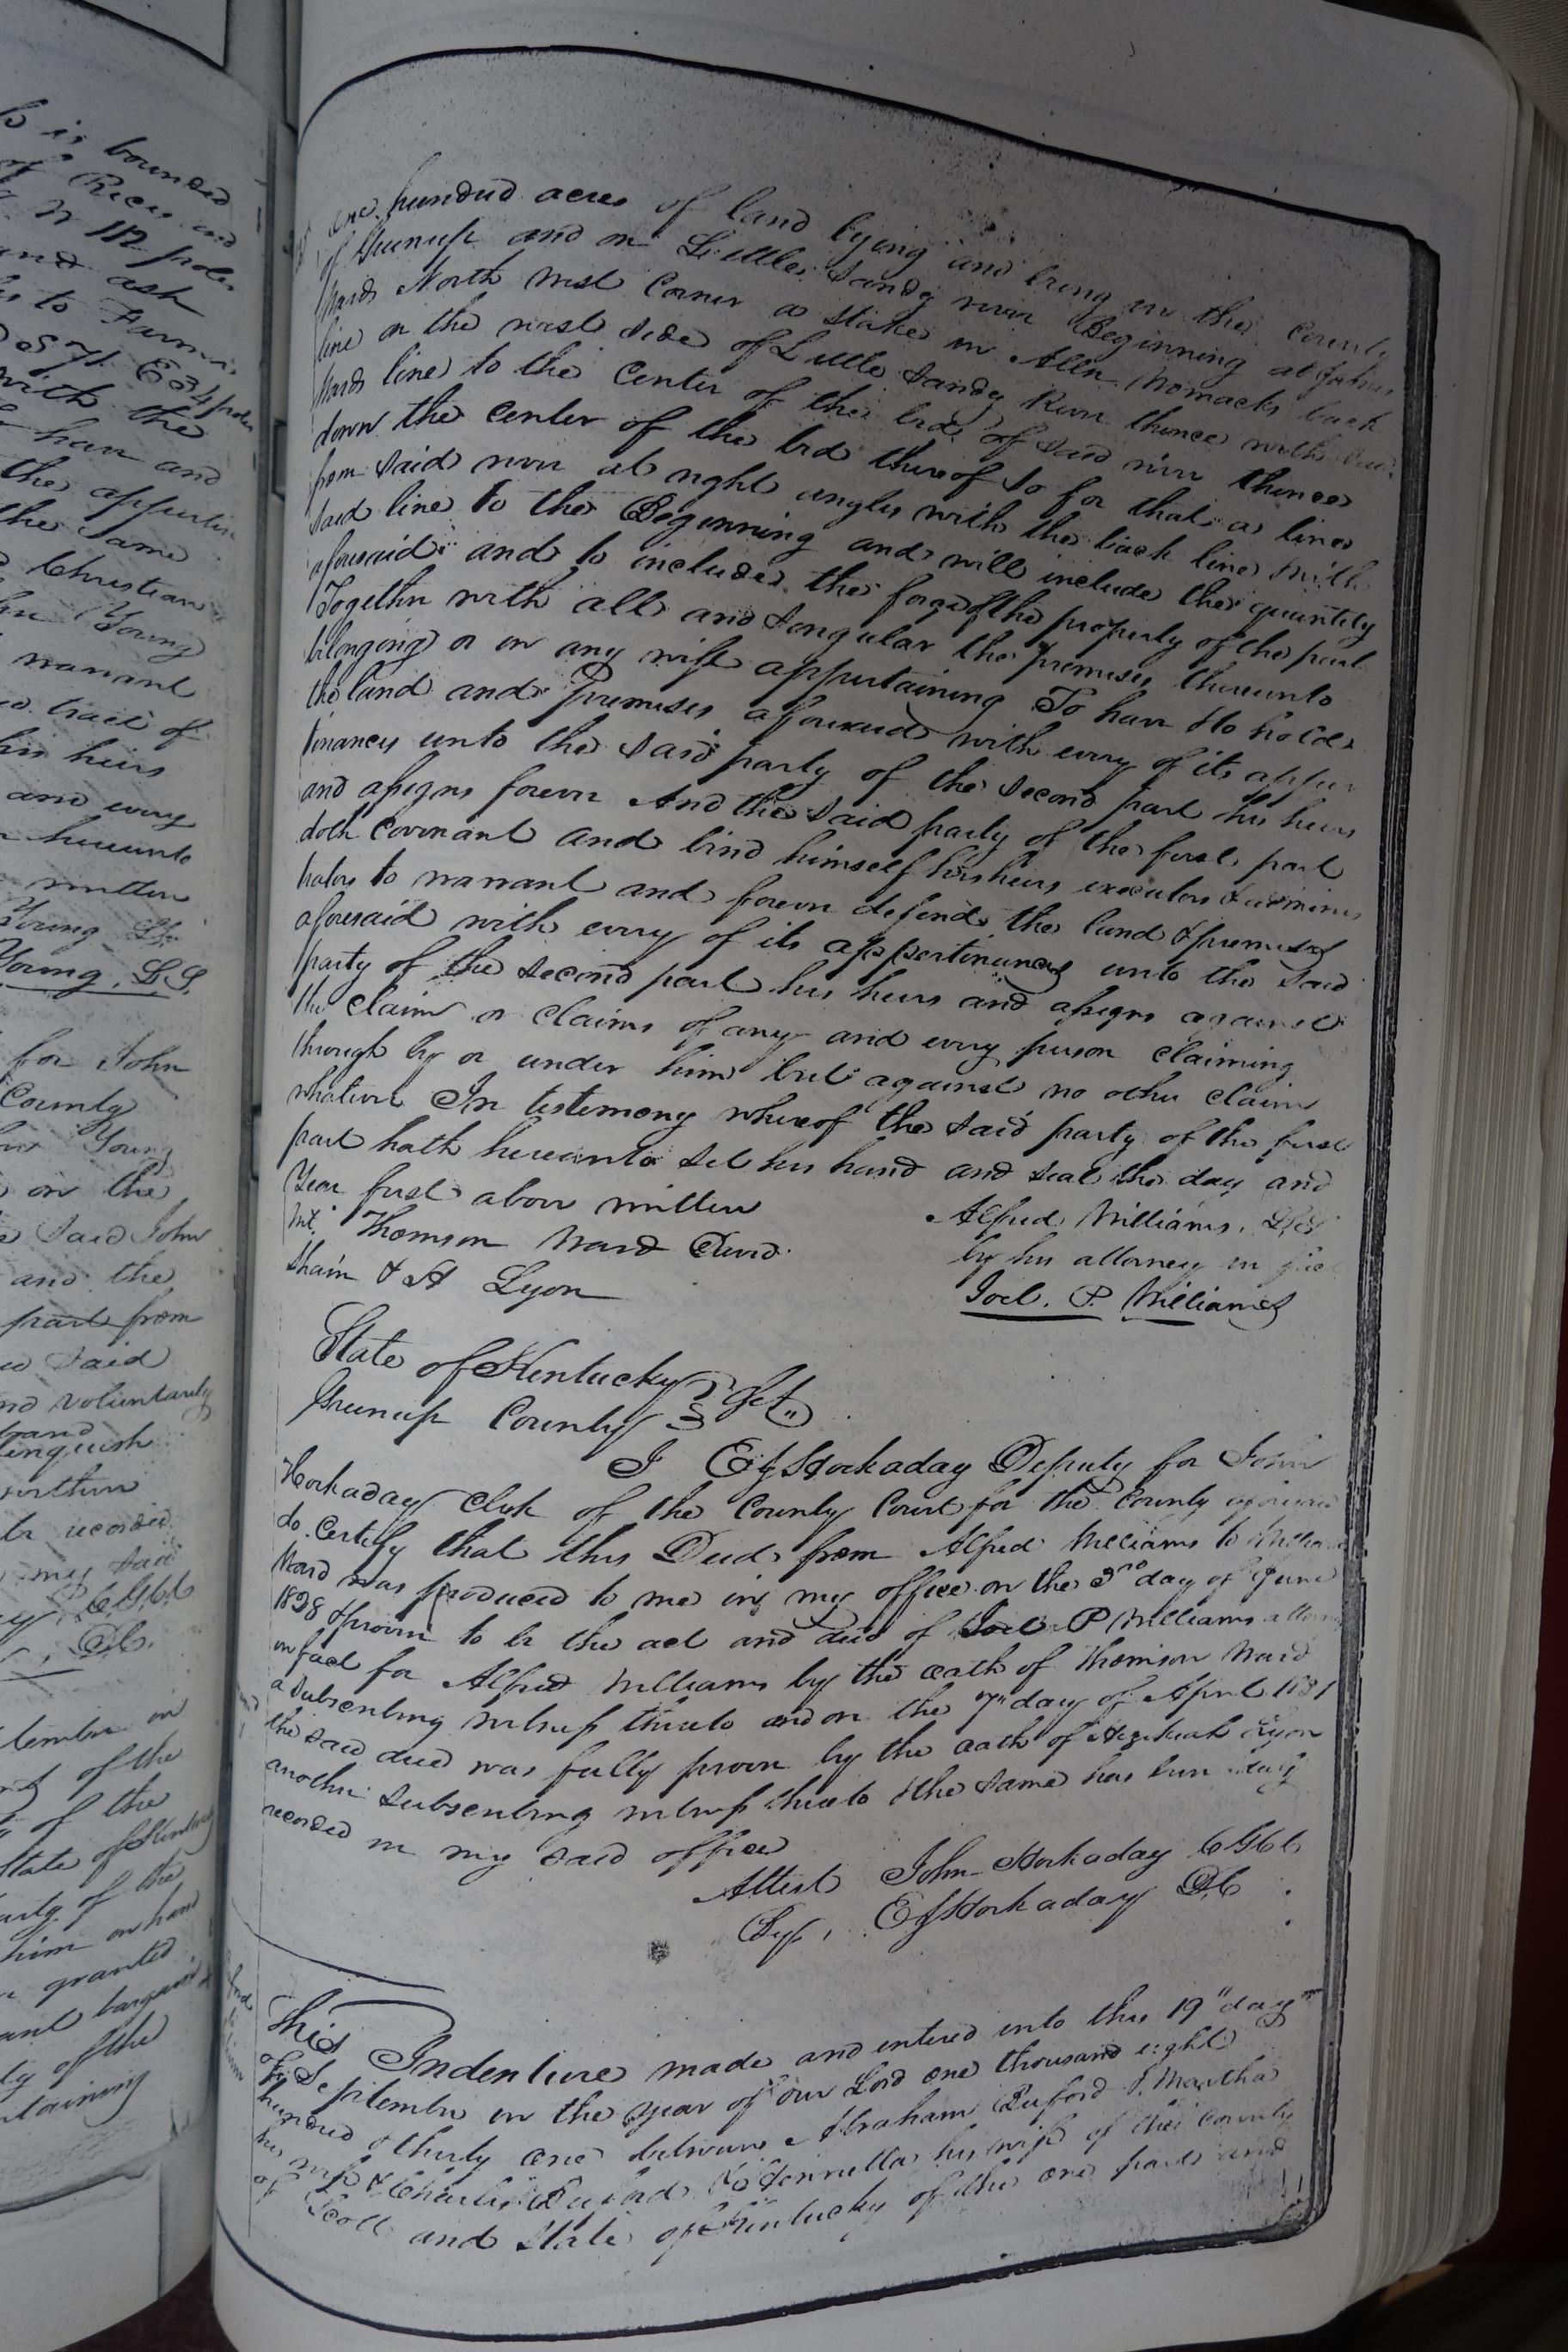 h is bounded
of Rices and
N 112 poles
and ash
to Farmis
S 71 E 34 poles
with the
have and
the appertin
the same
Christian
Young
warrant
tract of
his heirs
and every
hereunto
written
Young L.S.
Young. L.S.
for John
County
Young
on the
Said John
and the
part from
Said
and voluntarily
hand
linquish
within
be recorded
my said
CGCC
D.C.
tember in
of the
of the
State of Kentucky
arty of the
him in hand
granted
bargain
ty of the
rtaining
one hundred acres of land lying and being in the County
of Greenup and on Little Sandy river Beginning at John
Wards North west Corner a Stake in Allen Womacks back
line on the west side of Little Sandy River thence with said
Wards line to the Center of the bed of said river thence
down the center of the bed thereof so far that a line
from said river at right angles with the back line with
said line to the Beginning and will include the quantity
aforesaid and to include the forge of the property of the part
Together with all and Singular the premises thereunto
belonging or in any wise appertaining To have & to hold
the land and Premises aforesaid with every of its appur
tinances unto the said party of the second part his heirs
and assigns forever And the said party of the first part
doth Covenant and bind himself his heirs executors & adminis
trators to warrant and forever defend the land & premises
aforesaid with every of its appertinances unto the said
party of the second part his heirs and assigns against
the claim or claims of any and every person claiming
through by or under him but against no other claim
whatever In testimony whereof the said party of the first
part hath hereunto set his hand and seal the day and
Year first above written
Alfred Williams. L.S.
Wt. Thomson Ward
by his attorney in fact
& H Lyon
Joel. P. Williams
State of Kentucky
Greenup County Sct.
I E J Hockaday Deputy for John
Hockaday Clerk of the County Court for the County aforesaid
do Certify that this Deed from Alfred Williams to William
Ward was produced to me in my office on the 3rd day of June
1828 & proven to be the act and deed of Joel P Williams attorney
in fact for Alfred Williams by the oath of Thomson Ward
a Subscribing witness thereto and on the 7th day of April 1831
the said deed was fully proven by the oath of Hezekiah Lyon
another Subscribing witness thereto & the same has been duly
recorded in my said office
Attest John Hockaday CGCC
By, E J Hockaday D.C
This Indenture made and entered into this 19" day
of September in the year of our Lord one thousand eight
hundred & thirty one between Abraham Buford & Martha
his wife & Charles Buford & Henrietta his wife of the County
of Scott and State of Kentucky of the one part and